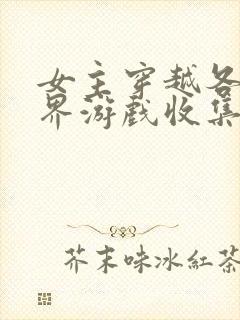 女主穿越各
界游戏收集
芥末味冰紅茶